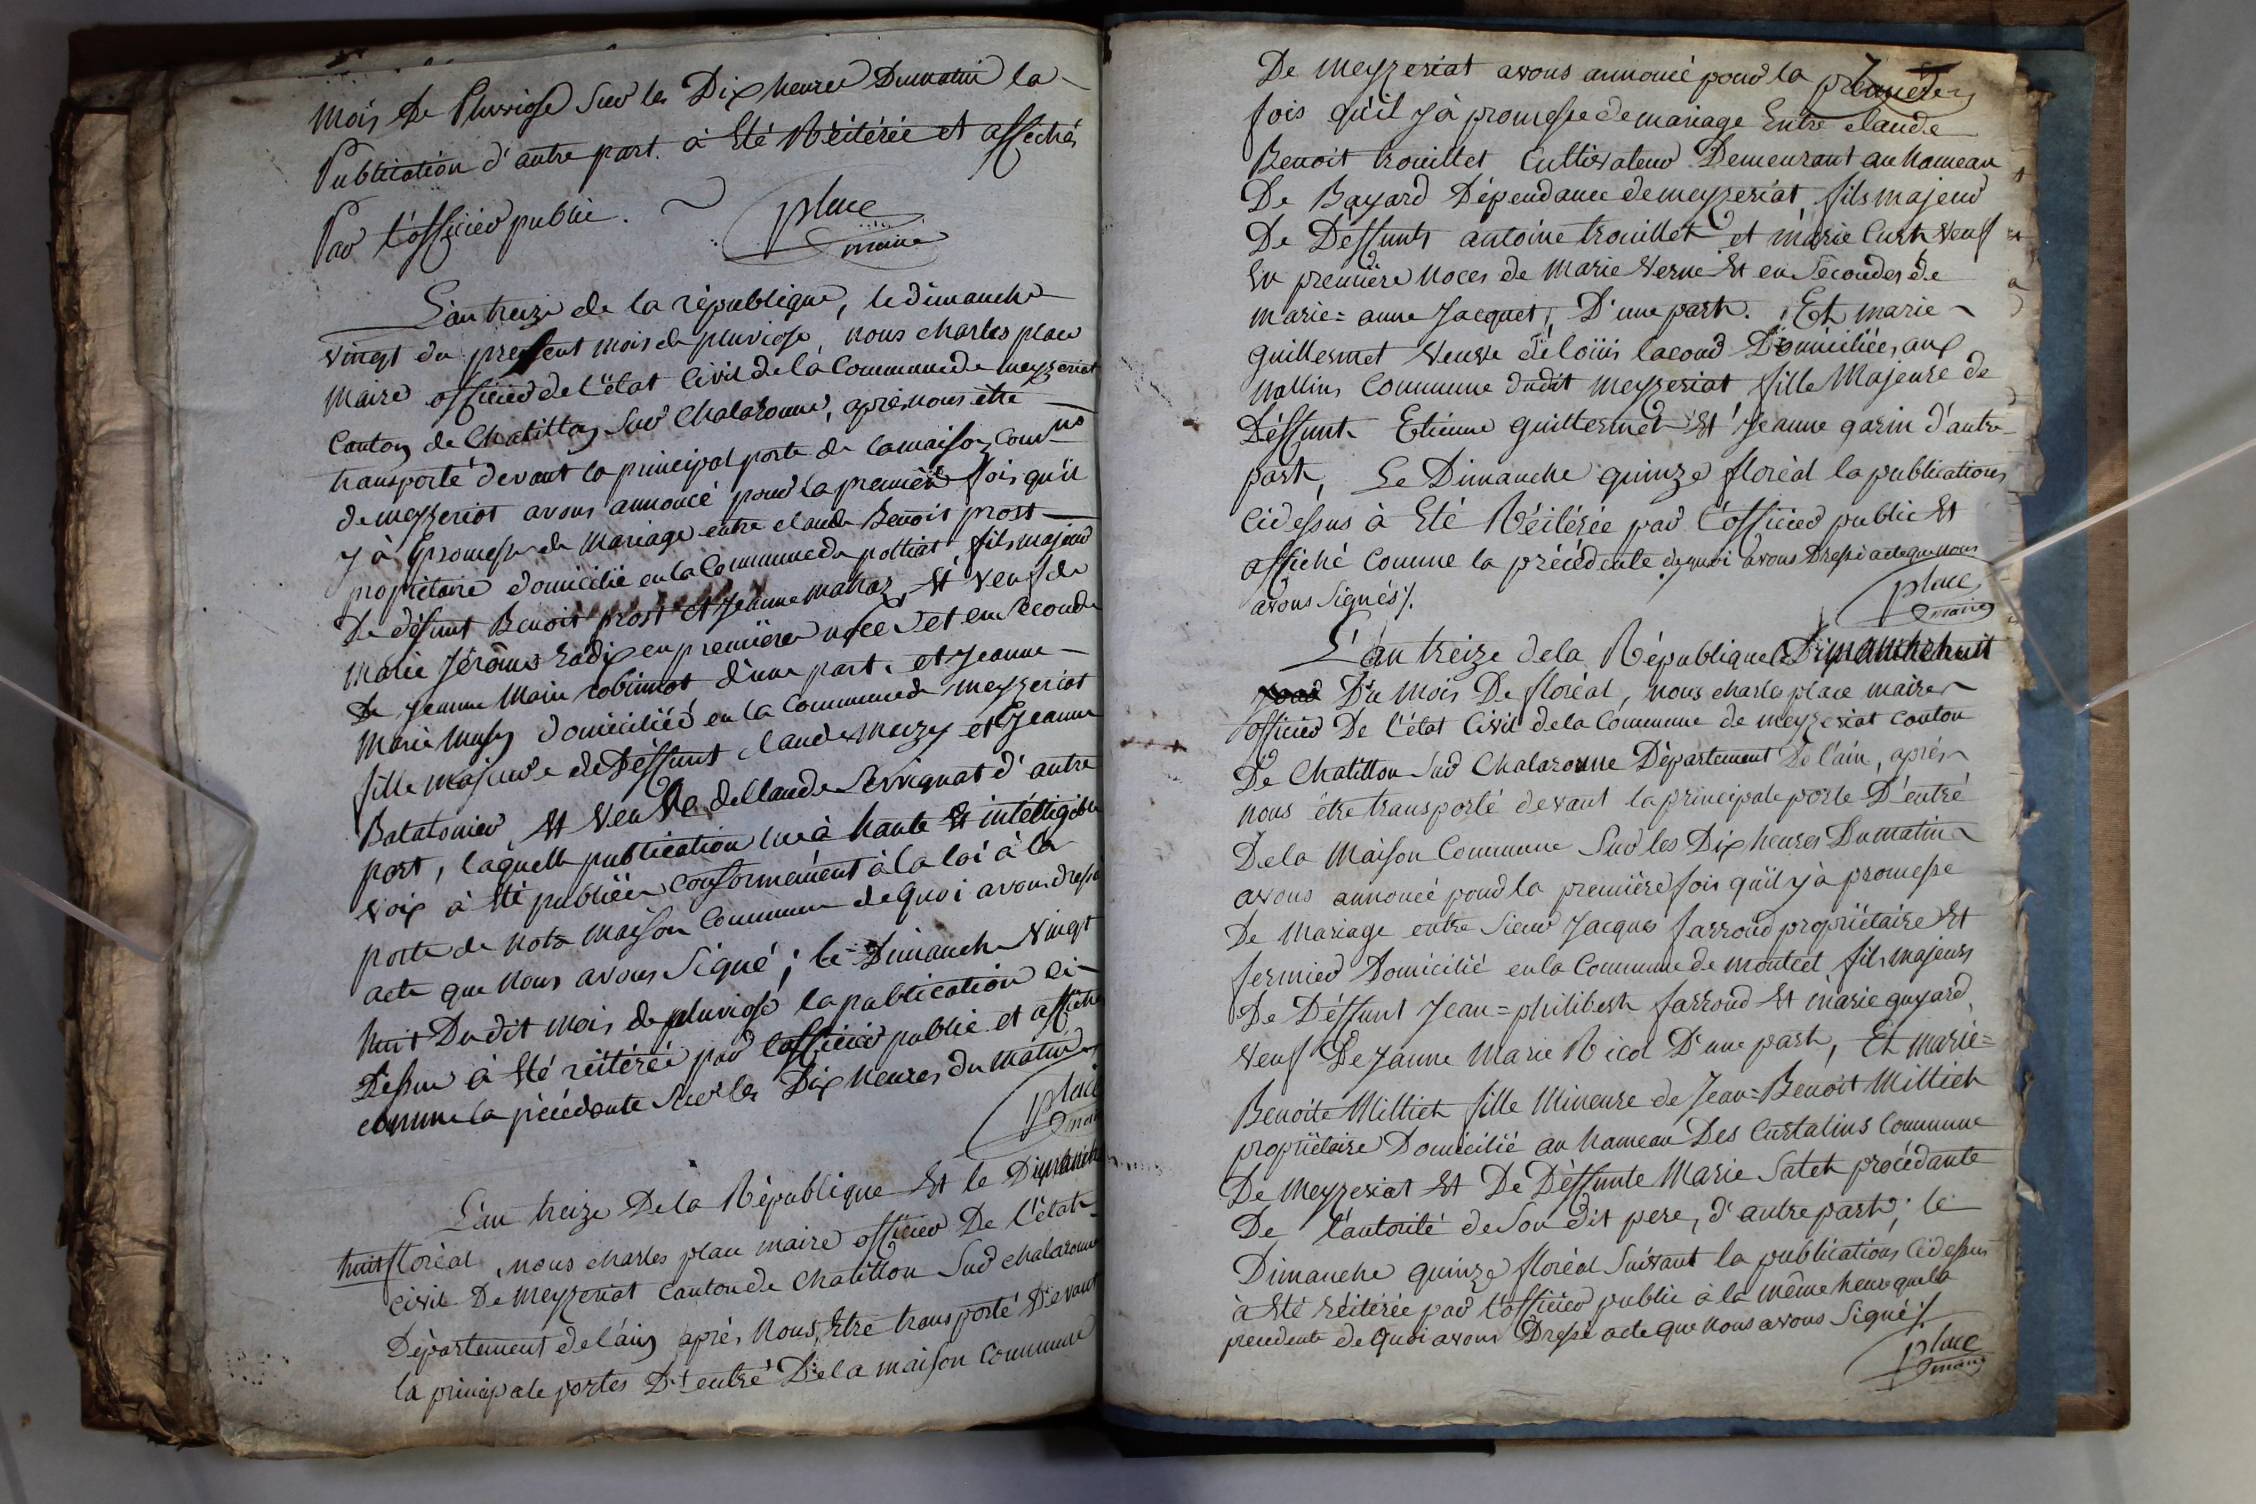 mois de Pluviose sur les Dix heures Dumatin la
Publication d'autre part. à Eté Réitérée et affiché
Par l'officier public.
place
maire
L'an treize de la république, le dimanche
vingt du present mois de pluviose, nous charles place
maire officier de l'état Civil de la Commune de meyzeriat
Canton de Chatillon Sur Chalaronne, après nous être
transporté devant la principal porte de la maison Comne
de meyzeriat avons annoncé pour la premiere fois qu'il
y à promesse de mariage entre claude Benoit prost
propriétaire domicilié en la Commune de polliat, fils majeur
De défunt Benoit prost et Jeanne maltaz, Et veuf de
marie Jérôme en premiere noces et en seconde
De Jeanne Marie robinot d'une part. et Jeanne
Marie domiciliée en la Commune de meyzeriat
fille majeure de Déffunt claude et Jeanne
Batalonier Et Veuve de Claude Servignat d'autre
part, laquelle publication lue à haute Et intélligible
voix à Eté publiée conformément à la loi à la
porte de notre maison Commune de quoi avons dressé
acte que nous avons Signé; le Dimanche vingt
huit Du dit mois de pluviose la publication ci-
Dessus à Eté réitérée par l'officier public et affiché
comme la précédente sur les Dix heures du matin
place
maire
L'an treize De la République Et le Dimanche
huit floréal, nous charles place maire officier De l'état
civil De Meyzeriat Canton de Chatillon Sur chalaronne
Département de l'ain après Nous Etre transporté Devant
la principale portes D'entré De la maison Commune
De meyzeriat avons annoncé pour la premiere
fois qu'il y à promesse de mariage Entre claude
Benoit trouillet Cultivateur Demeurant au hameau
De Bayard Dépendance de meyzeriat fils majeur
De Déffunts antoine trouillet et marie Curt veuf
En première noces de Marie Verne Et en Secondes de
marie=anne Jacquet, D'une part. Et marie
guillermet Veuve de loüis lacour Domiciliée aux
Mollins Commune dudit Meyzeriat fille Majeure de
Déffunt Etienne guillermet Et Jeanne garin d'autre
part, Le Dimanche quinze floréal la publications
Cidessus à Eté Réitérée par l'officier public Et
affiché Comme la précédente de quoi avons Dressé acte que nous
avons Signés/.
place
maire
L'an treize de la République le Dimanche huit
Du Mois De floréal, nous charles place maire
officier De l'état Civil de la Commune de meyzeriat canton
De Chatillon Sur Chalaronne Département De l'ain, après
nous être transporté devant la principale porte D'entré
De la Maison Commune Sur les Dix heures Dumatin
avons annoncé pour la première fois qu'il y à promesse
De Mariage entre Sieur Jacques farroud propriétaire Et
fermier Domicilié en la Commune de montcet fils majeurs
De Déffunt Jean=philibert farroud Et marie guyard
veuf De Jeanne Marie Nicol D'une part, Et marie=
Benoite Milliet fille Mineure de Jean=Benoit Milliet
propriétaire Domicilié au hameau Des Curtalins Commune
De Meyzeriat Et De Déffunte Marie Salet procédante
De l'autorité de Son dit pere, d'autre part; le
Dimanche quinze floréal Suivant la publications Cidessus
à Eté réitérée par l'officier public à la même heure que la
precedente de Quoi avons Dressé acte que nous avons Signé/.
place
maire